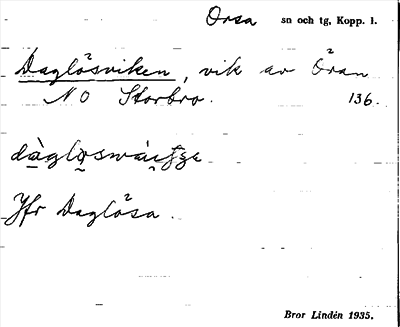 Orsa sn och tg, Kopp. l.
Daglösviken, vik av Öran
NO Storbro. 136.
Jfr Daglösa.
Bror Lindén 1935.